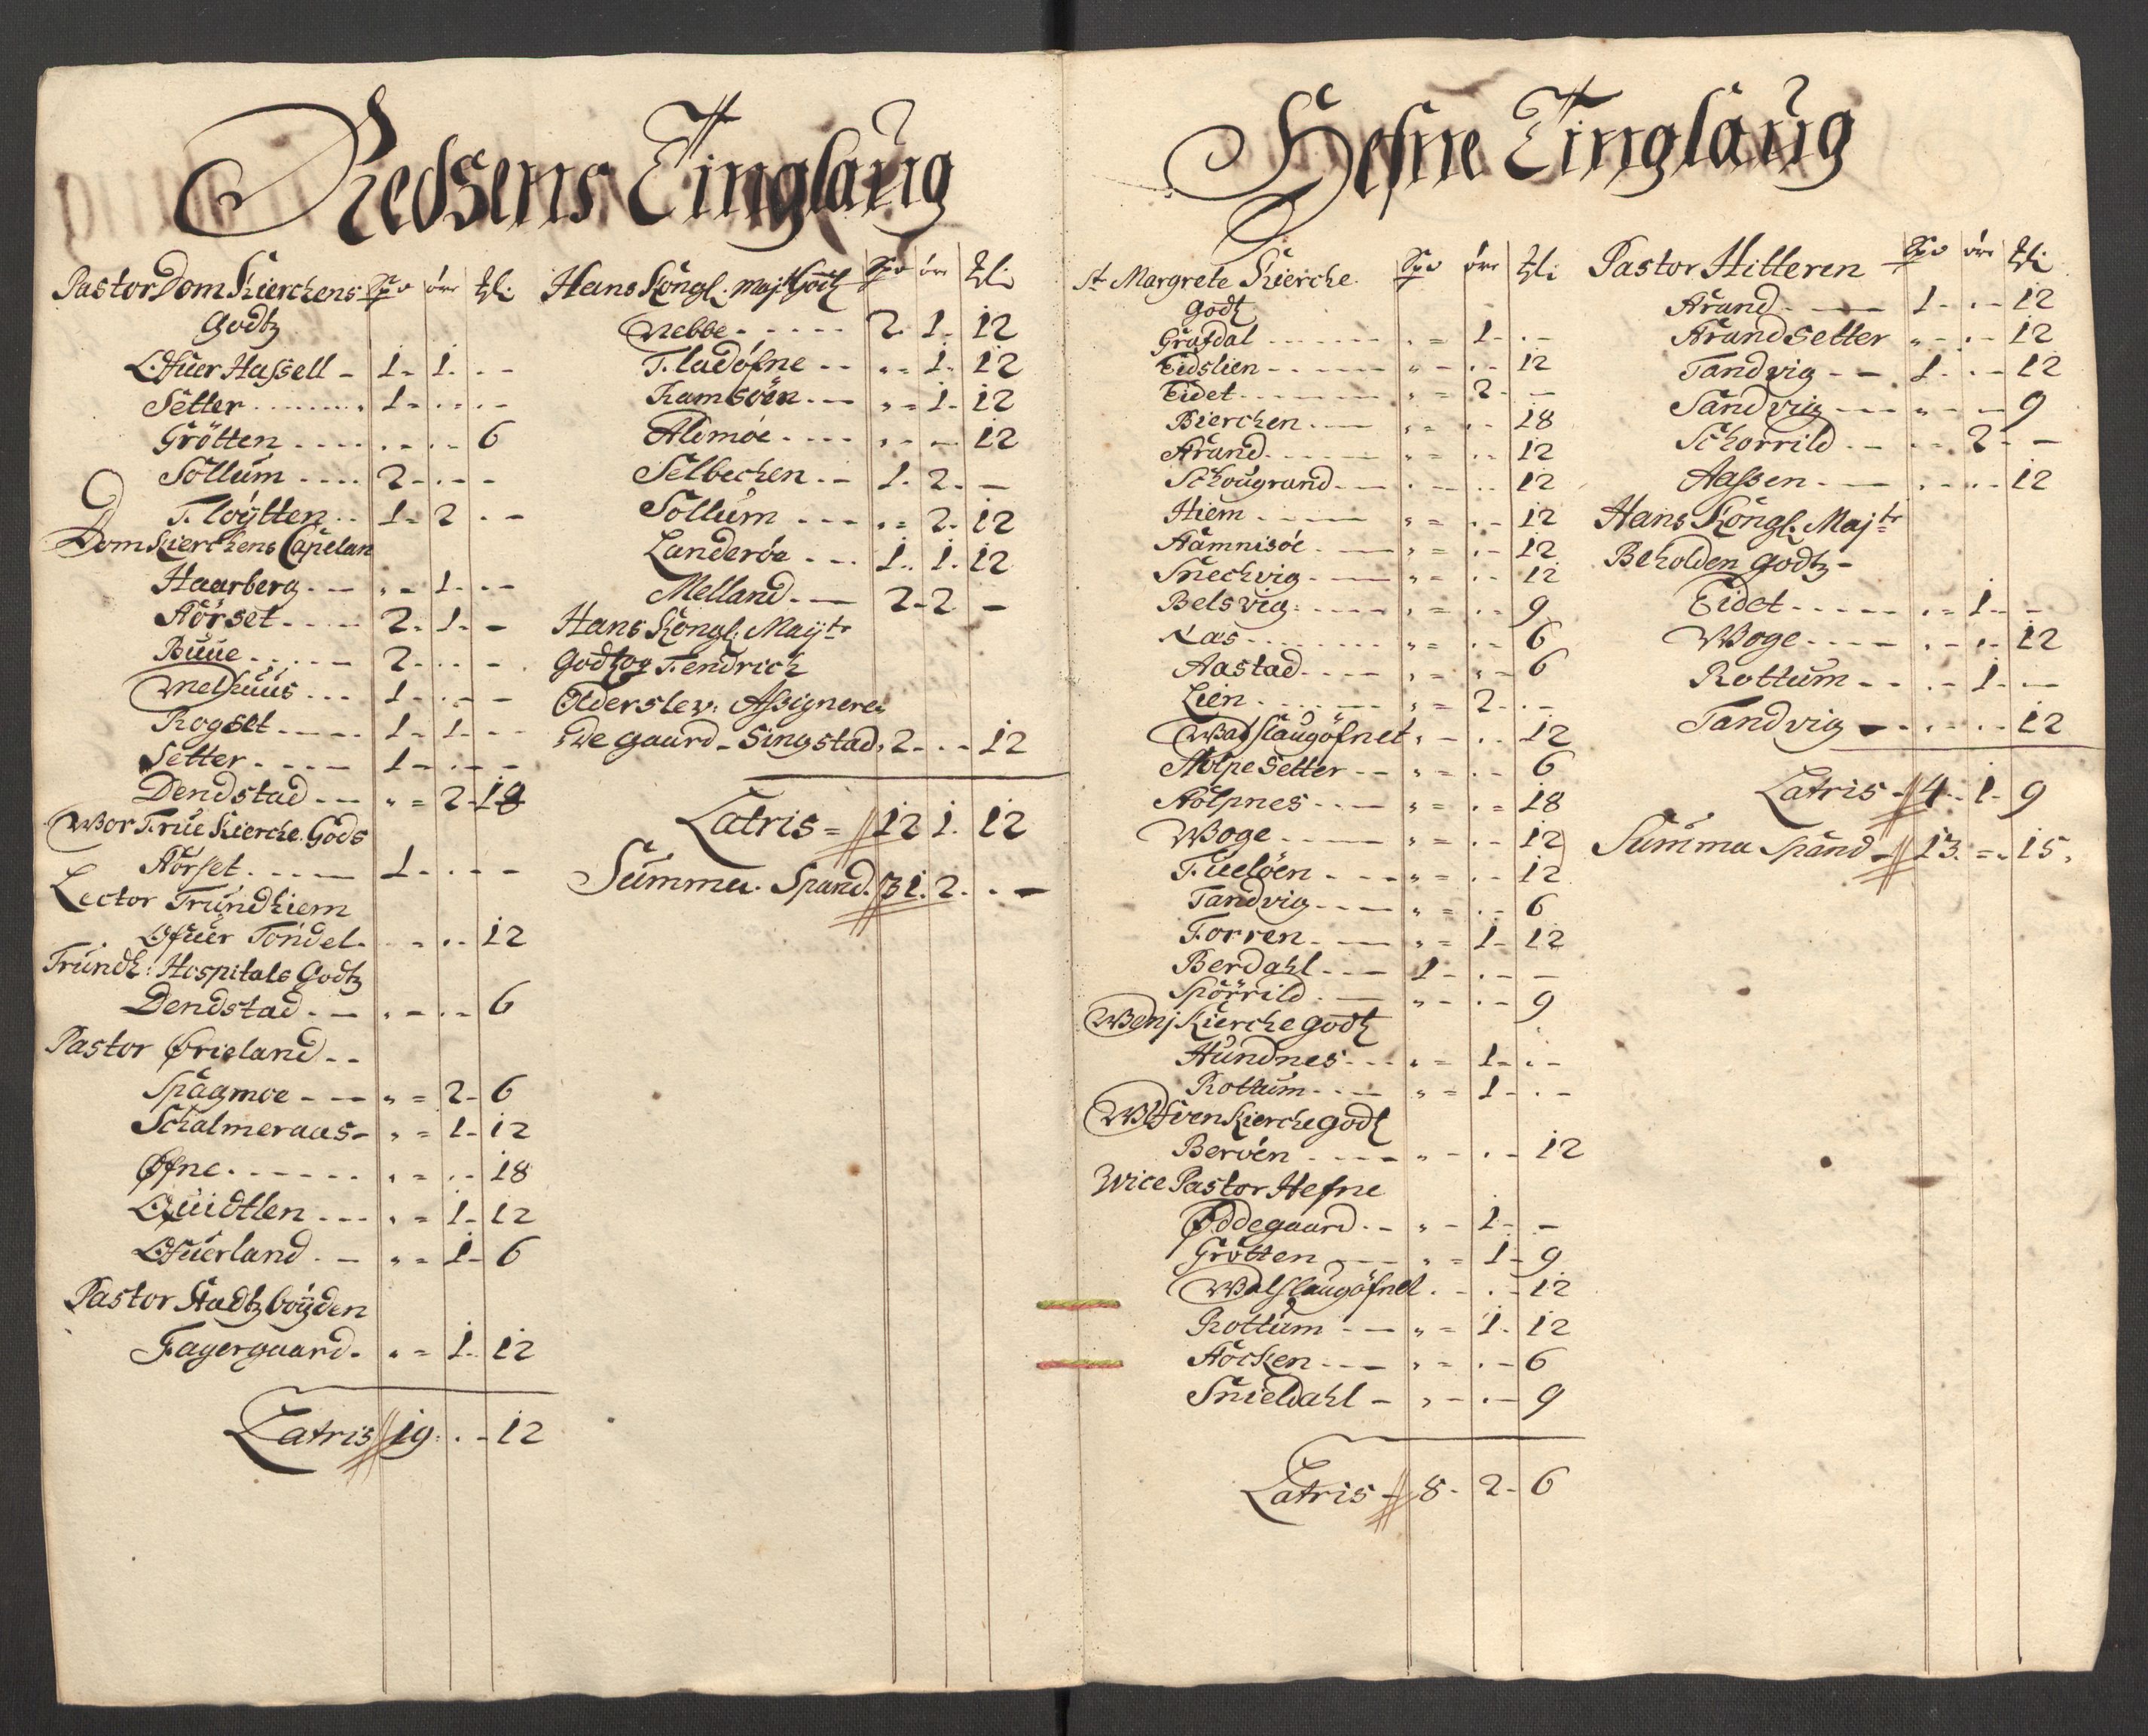 Redsens Tinglaug
Pastor Dom Kierchens Spd öre Mkl:
Godtz
Ofuer Hassell - 1 - 1 - -
Setter - 1 - - -
Grötten - - - 6
Sollum - 2 - - -
Fløytten - 1 - 2 - -
Dom Kierchens Capelan
Haarberg - - - 1 - -
Hörset - 2 - 1 - -
Buue - 2 - - -
Melhuus - 1 - - -
Rogset - 1 - 1 - -
Setter - 1 - - -
Dendstad - " = 2 - 18
Wor Frue Kierche Gods
Hörset - 1 - - -
Lector Trundhiem
Ofuer Töndel - - - 12
Trundh: Hospitals Godtz
Dendstad - - - 6
Pastor Ørieland - -
Spagmoe - " = 2 - 6
Schalmeraas - " = 1 - 12
Øfne - " = - 18
Quidtlen - " = 1 - 12
Ofuerland - " = 1 - 6
Pastor Stadtzböyden
Fagergaard - " = 1 - 12
Latris 19 - - 12
Hans Kongl. Maj: Godtz Spd öre Mkl:
Nebbe - 2 - 1 - 12
Fladøfne - " - 1 - 12
Ramsöen - " = 1 - 12
Alemoe - " - - 12
Selbechen - 1 - 2 - -
Sollum - " = 2 - 12
Landerøe - 1 - 1 - 12
Melland - 2 - 2 -
Hans Kongl: Mayts
Godtz og Fendrich
Olderslev: Assignerer
de gaard - Singstad, 2 - - 12
Latris = 12 1. 12
Summa. Spand. 31. 2. - -
Hefne Tinglaug
St Margrete Kierche Spd öre Mkl:
Godtz
Grafdal - " = 1 - -
Eidslien - " - - 12
Eidet - " = 2 - -
Bierchen - " = - 18
Strand - " = - 12
Schougrand - - - 12
Hiem - " = - 12
Hamnisöe - " = - 12
Snechvig - " = - 12
Belsvig - " = - 9
Naas - " = - 6
Aastad - " = - 6
Lien - " = 2 - -
Walslaugöfnet " - - 12
Stolpesetter - " = - 6
Stolpnes - " = - 18
Woge - " = - 12
Fuelöen - " = - 12
Tandvig - " = - 6
Forren - " = 1 - 12
Berdahl - 1 - - -
Spörrild - " - - 9
Wenj Kierche godtz
Hundnes - " = 1 - -
Rottum - " = 1 - -
Kierche godtz
Beröen - " - - 12
Wice Pastor Hefne
Øddegaard - " - 1 - -
Grötten - " = 1 - 9
Walslaugöfnet - - - 12
Rottum - " = 1 - 12
Höcken - " = - 6
Snieldahl - " - - 9
Latris - 8 - 2 - 6
Pastor Hitteren Spd öre Mkl:
Strand - 1 - - 12
Strandsetter " - - 12
Tandvig - 1 - - 12
Sandvig - " - - 9
Schorrild - - - 2 - -
Aassen - - - 12
Hans Kongl. Majts
Beholden godtz -
Eidet - - = 1 - -
Woge - - - 12
Rottum - - - 1 - -
Tandvig - - - 12
Latris - 4 - 1 - 9
Summa Spand - 13 = - 15.